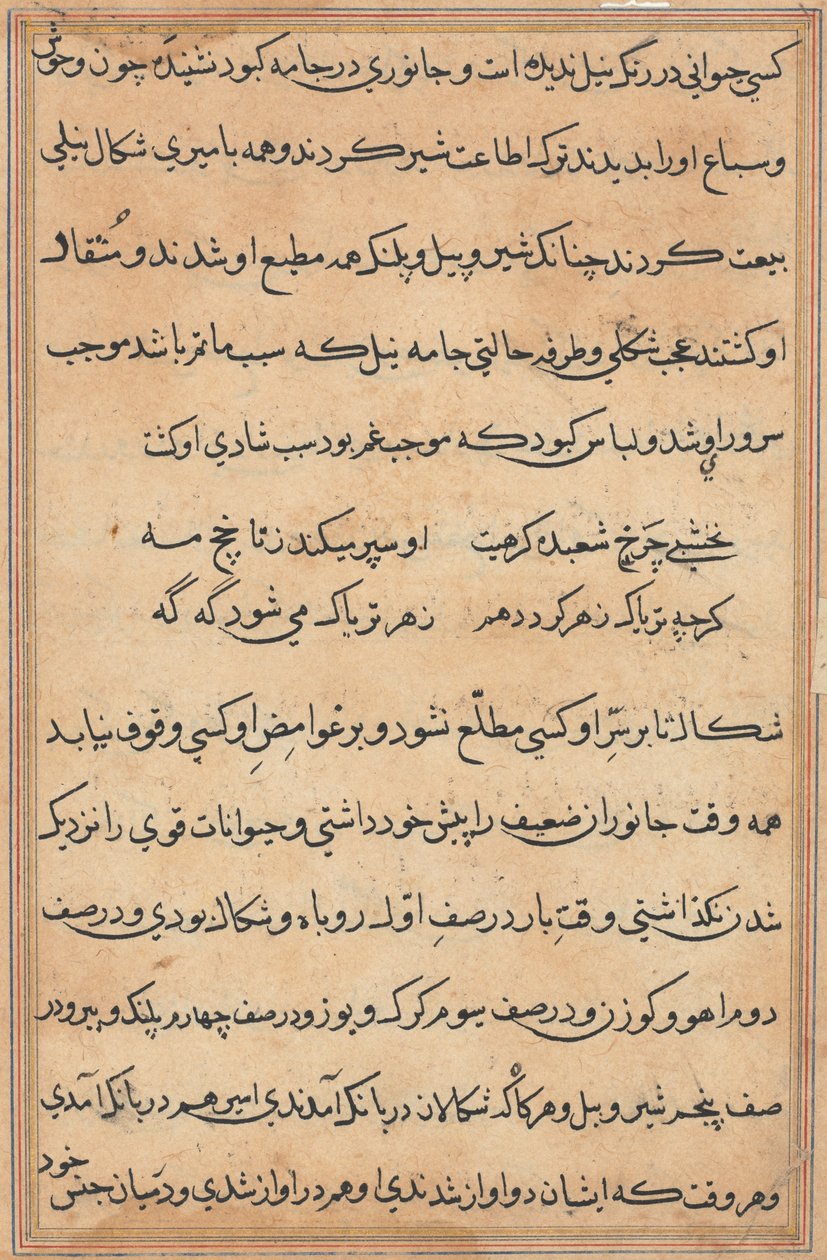 كسي حيواني در رنك نيل نديده است و جانوري در جامه كبود نشنيده چون وحوش
و سباع او را بديدند ترك اطاعت شير كردند و همه با ميري شكال نيلي
بيعت كردند چنانك شير و پيل و پلنك همه مطيع او شدند و مُنْقاد
او كشتند عجب شكلي و طرفه حالتي جامه نيل كه سبب ماتم باشد موجب
سرور اوي شد و لباس كبود كه موجب غم بود سبب شادي او كشت
نخشبي چَرخ شعبده كرهيت او سپر ميكند ز تا نخ مه
كرچه ترياك زهر كرد دهم زهر ترياك مي شود گه گه
شكال تا بر سِرّ او كسي مطلّع نشود و بر غوامِضِ او كسي وقوف نيابد
همه وقت جانوران ضعيف را پيش خود داشتي و حيوانات قوي را نزديك
شدن نكذاشتي وقتِ بار در صفِ اوّل روباه و شكال بودي و در صف
دوم اهو و كوزن و در صف سوم كرك و يوز و در صف چهارم پلنك و ببر و در
صف پنجم شير و پيل و هركاْه شكالان در بانك آمدندي امير هم در بانك آمدي
و هر وقت كه ايشان در اواز شدندي او هم در اواز شدي و در ميان جنس خود